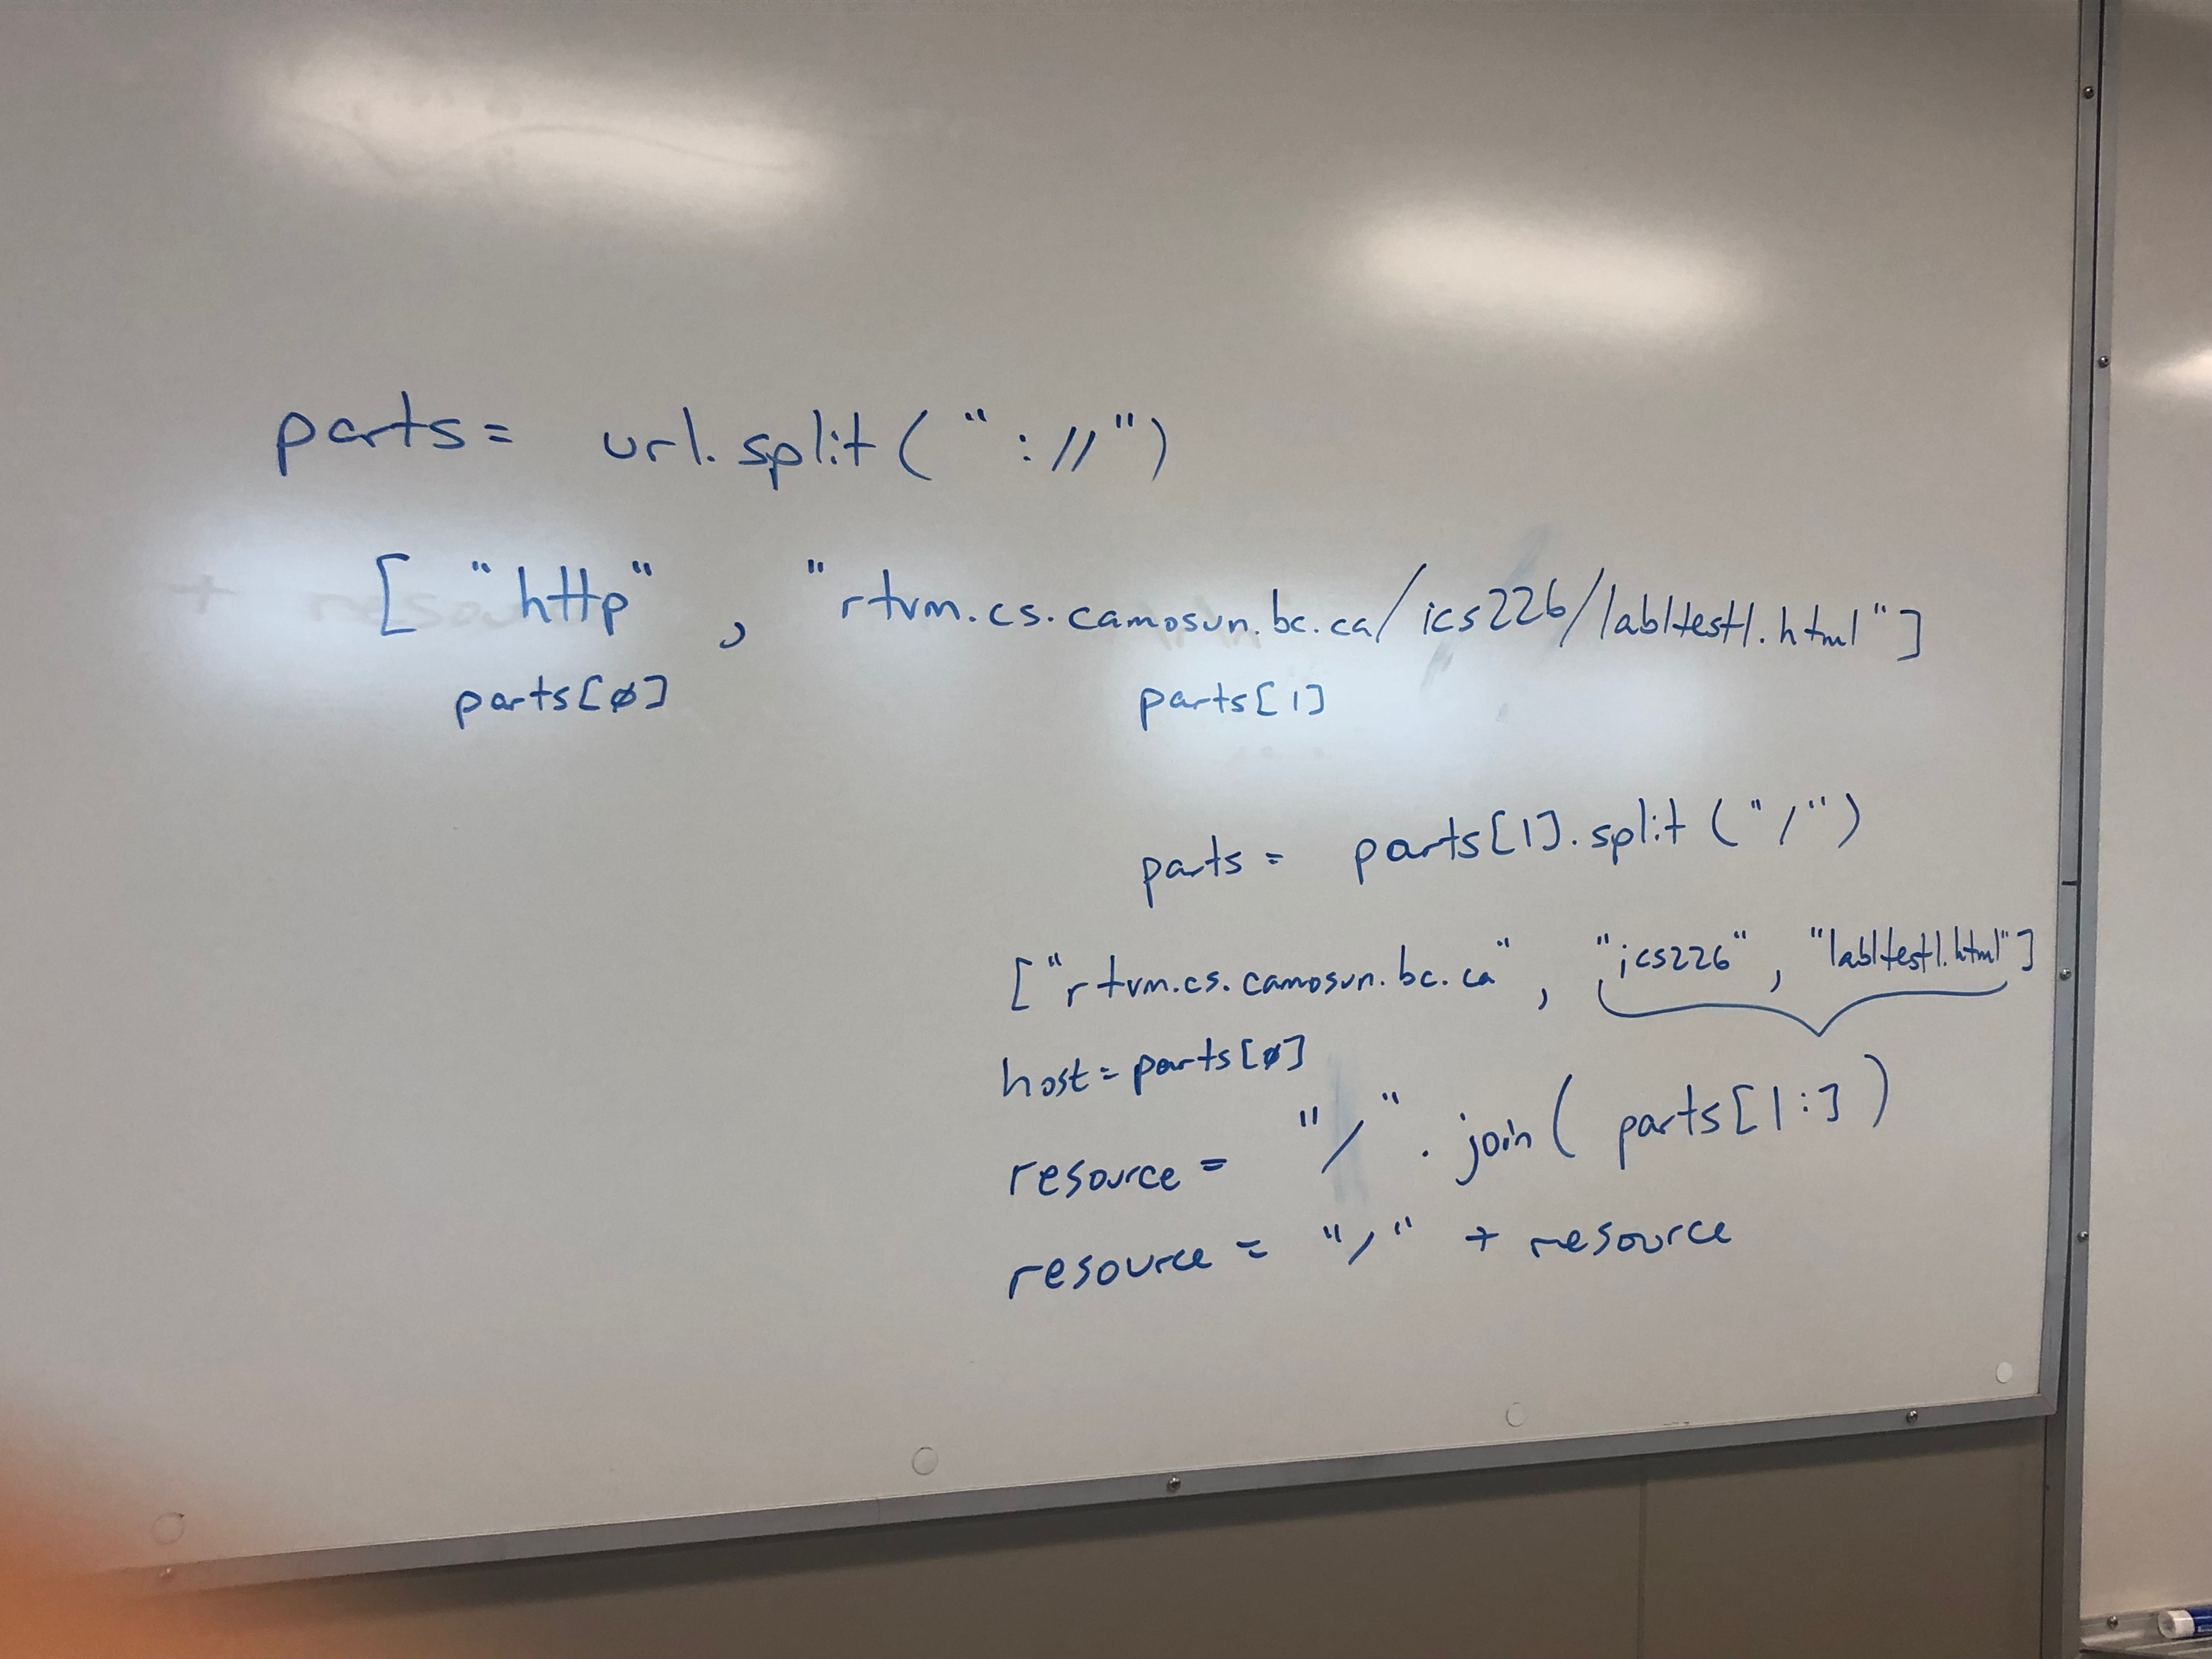 parts= url.split("://")
["http", "rtvm.cs.camosun.bc.ca/ics226/lab1test1.html"]
parts[0] parts[1]
parts = parts[1].split("/")
["rtvm.cs.camosun.bc.ca", "ics226", "lab1test1.html"]
host=parts[0]
resource = "/".join(parts[1:])
resource = "/" + resource